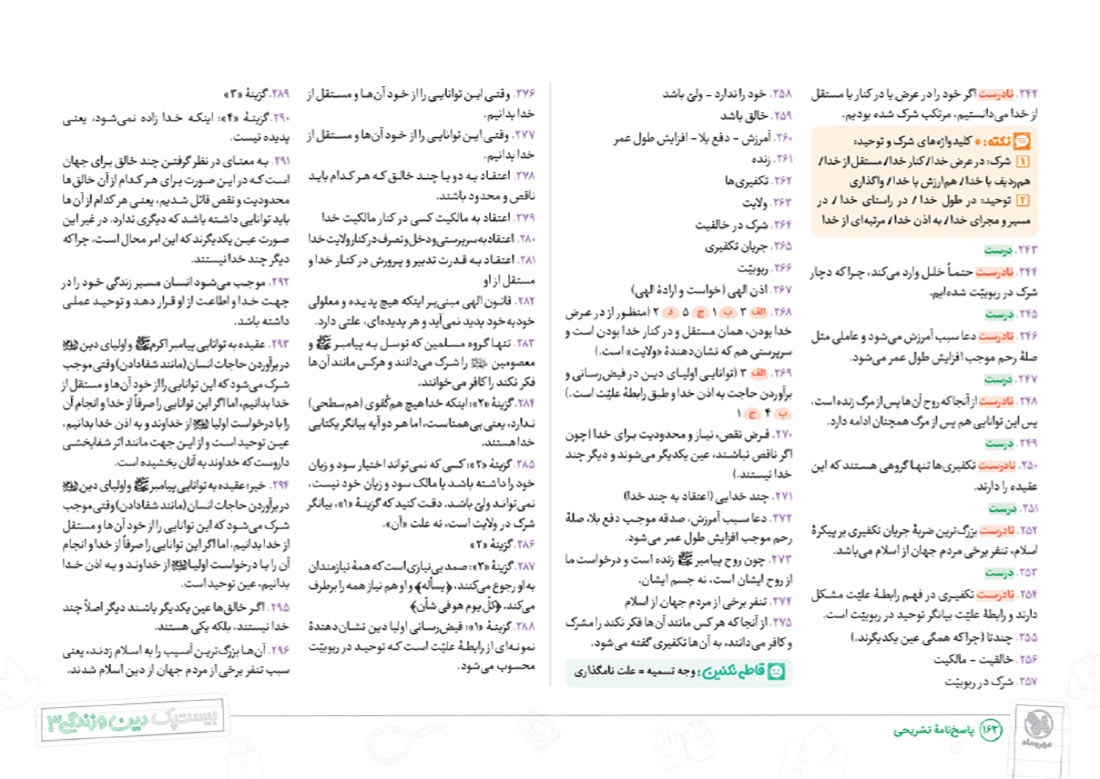 ۲۴۲. نادرست اگر خود را در عرض یا در کنار یا مستقل
از خدا می‌دانستیم، مرتکب شرک شده بودیم.
نکته: کلیدواژه‌های شرک و توحید:
۱ شرک: در عرض خدا/ کنار خدا/ مستقل از خدا/
هم‌ردیف با خدا/ هم‌ارزش با خدا/ واگذاری
۲ توحید: در طول خدا / در راستای خدا / در
مسیر و مجرای خدا/ به اذن خدا/ مرتبه‌ای از خدا
۲۴۳. درست
۲۴۴. نادرست حتماً خلل وارد می‌کند، چرا که دچار
شرک در ربوبیّت شده‌ایم.
۲۴۵. درست
۲۴۶. نادرست دعا سبب آمرزش می‌شود و عاملی مثل
صلهٔ رحم موجب افزایش طول عمر می‌شود.
۲۴۷. درست
۲۴۸. نادرست از آنجا که روح آن‌ها پس از مرگ زنده است،
پس این توانایی هم پس از مرگ همچنان ادامه دارد.
۲۴۹. درست
۲۵۰. نادرست تکفیری‌ها تنها گروهی هستند که این
عقیده را دارند.
۲۵۱. درست
۲۵۲. نادرست بزرگ‌ترین ضربهٔ جریان تکفیری بر پیکرهٔ
اسلام، تنفر برخی مردم جهان از اسلام می‌باشد.
۲۵۳. درست
۲۵۴. نادرست تکفیری در فهم رابطهٔ علیّت مشکل
دارند و رابطهٔ علیّت بیانگر توحید در ربوبیّت است.
۲۵۵. چندتا (چرا که همگی عین یکدیگرند.)
۲۵۶. خالقیت - مالکیت
۲۵۷. شرک در ربوبیّت
۲۵۸. خود را ندارد - ولیّ باشد
۲۵۹. خالق باشد
۲۶۰. آمرزش - دفع بلا - افزایش طول عمر
۲۶۱. زنده
۲۶۲. تکفیری‌ها
۲۶۳. ولایت
۲۶۴. شرک در خالقیت
۲۶۵. جریان تکفیری
۲۶۶. ربوبیّت
۲۶۷. اذن الهی (خواست و ارادهٔ الهی)
۲۶۸. الف ۳ ب ۱ ج ۵ د ۲ (منظور از در عرض
خدا بودن، همان مستقل و در کنار خدا بودن است و
سرپرستی هم که نشان‌دهندهٔ «ولایت» است.)
۲۶۹. الف ۳ (توانایی اولیای دین در فیض‌رسانی و
برآوردن حاجت به اذن خدا و طبق رابطهٔ علیّت است.)
ب ۴ ج ۱
۲۷۰. فرض نقص، نیاز و محدودیت برای خدا (چون
اگر ناقص نباشند، عین یکدیگر می‌شوند و دیگر چند
خدا نیستند.)
۲۷۱. چند خدایی (اعتقاد به چند خدا)
۲۷۲. دعا سبب آمرزش، صدقه موجب دفع بلا، صلهٔ
رحم موجب افزایش طول عمر می‌شود.
۲۷۳. چون روح پیامبر ﷺ زنده است و درخواست ما
از روح ایشان است، نه جسم ایشان.
۲۷۴. تنفر برخی از مردم جهان از اسلام
۲۷۵. از آنجا که هر کس مانند آن‌ها فکر نکند را مشرک
و کافر می‌دانند، به آن‌ها تکفیری گفته می‌شود.
قاطی نکنین: وجه تسمیه = علت نامگذاری
۲۷۶. وقتی این توانایی را از خود آن‌ها و مستقل از
خدا بدانیم.
۲۷۷. وقتی این توانایی را از خود آن‌ها و مستقل از
خدا بدانیم.
۲۷۸. اعتقاد به دو یا چند خالق که هر کدام باید
ناقص و محدود باشند.
۲۷۹. اعتقاد به مالکیت کسی در کنار مالکیت خدا
۲۸۰. اعتقاد به سرپرستی و دخل و تصرف در کنار ولایت خدا
۲۸۱. اعتقاد به قدرت تدبیر و پرورش در کنار خدا و
مستقل از او
۲۸۲. قانون الهی مبنی بر اینکه هیچ پدیده و معلولی
خودبه‌خود پدید نمی‌آید و هر پدیده‌ای، علتی دارد.
۲۸۳. تنها گروه مسلمین که توسل به پیامبر ﷺ و
معصومین را شرک می‌دانند و هرکس مانند آن‌ها
فکر نکند را کافر می‌خوانند.
۲۸۴. گزینهٔ «۲»: اینکه خدا هیچ هم‌کُفوی (هم‌سطحی)
ندارد، یعنی بی‌همتاست، اما هر دو آیه بیانگر یکتایی
خدا هستند.
۳۸۵. گزینهٔ «۲»: کسی که نمی‌تواند اختیار سود و زیان
خود را داشته باشد یا مالک سود و زیان خود نیست،
نمی‌تواند ولیّ باشد. دقت کنید که گزینهٔ «۱»، بیانگر
شرک در ولایت است، نه علت «آن».
۲۸۶. گزینهٔ «۲»
۲۸۷. گزینهٔ «۳»: صمد بی‌نیازی است که همهٔ نیازمندان
به او رجوع می‌کنند، ﴿یسأله﴾ و او هم نیاز همه را برطرف
می‌کند. ﴿کلّ یوم هو فی شأن﴾
۲۸۸. گزینهٔ «۱»: فیض‌رسانی اولیا دین نشان‌دهندهٔ
نمونه‌ای از رابطهٔ علیّت است که توحید در ربوبیّت
محسوب می‌شود.
۲۸۹. گزینهٔ «۳»
۲۹۰. گزینهٔ «۴»: اینکه خدا زاده نمی‌شود، یعنی
پدیده نیست.
۲۹۱. به معنای در نظر گرفتن چند خالق برای جهان
است که در این صورت برای هر کدام از آن خالق‌ها
محدودیت و نقص قائل شدیم، یعنی هر کدام از آن‌ها
باید توانایی داشته باشد که دیگری ندارد. در غیر این
صورت عین یکدیگرند که این امر محال است، چرا که
دیگر چند خدا نیستند.
۲۹۲. موجب می‌شود انسان مسیر زندگی خود را در
جهت خدا و اطاعت از او قرار دهد و توحید عملی
داشته باشد.
۲۹۳. عقیده به توانایی پیامبر اکرم ﷺ و اولیای دین
در برآوردن حاجات انسان (مانند شفا دادن) وقتی موجب
شرک می‌شود که این توانایی را از خود آن‌ها و مستقل از
خدا بدانیم، اما اگر این توانایی را صرفاً از خدا و انجام آن
را با درخواست اولیا از خداوند و به اذن خدا بدانیم،
عین توحید است و از این جهت مانند اثر شفابخشی
داروست که خداوند به آنان بخشیده است.
۲۹۴. خیر؛ عقیده به توانایی پیامبر ﷺ و اولیای دین
در برآوردن حاجات انسان (مانند شفا دادن) وقتی موجب
شرک می‌شود که این توانایی را از خود آن‌ها و مستقل
از خدا بدانیم، اما اگر این توانایی را صرفاً از خدا و انجام
آن را با درخواست اولیا از خداوند و به اذن خدا
بدانیم، عین توحید است.
۲۹۵. اگر خالق‌ها عین یکدیگر باشند دیگر اصلاً چند
خدا نیستند، بلکه یکی هستند.
۲۹۶. آن‌ها بزرگ‌ترین آسیب را به اسلام زدند، یعنی
سبب تنفر برخی از مردم جهان از دین اسلام شدند.
مهروماه
۱۶۲ پاسخ‌نامهٔ تشریحی
بیست‌پک دین و زندگی ۳